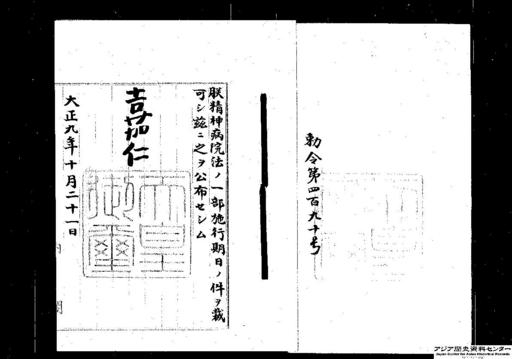 勅令第四百九十号
朕精神病院法ノ一部施行期日ノ件ヲ裁
可シ茲ニ之ヲ公布セシム
嘉仁
天皇御璽
大正九年十月二十一日
内閣
アジア歴史資料センター
Japan Center for Asian Historical Records